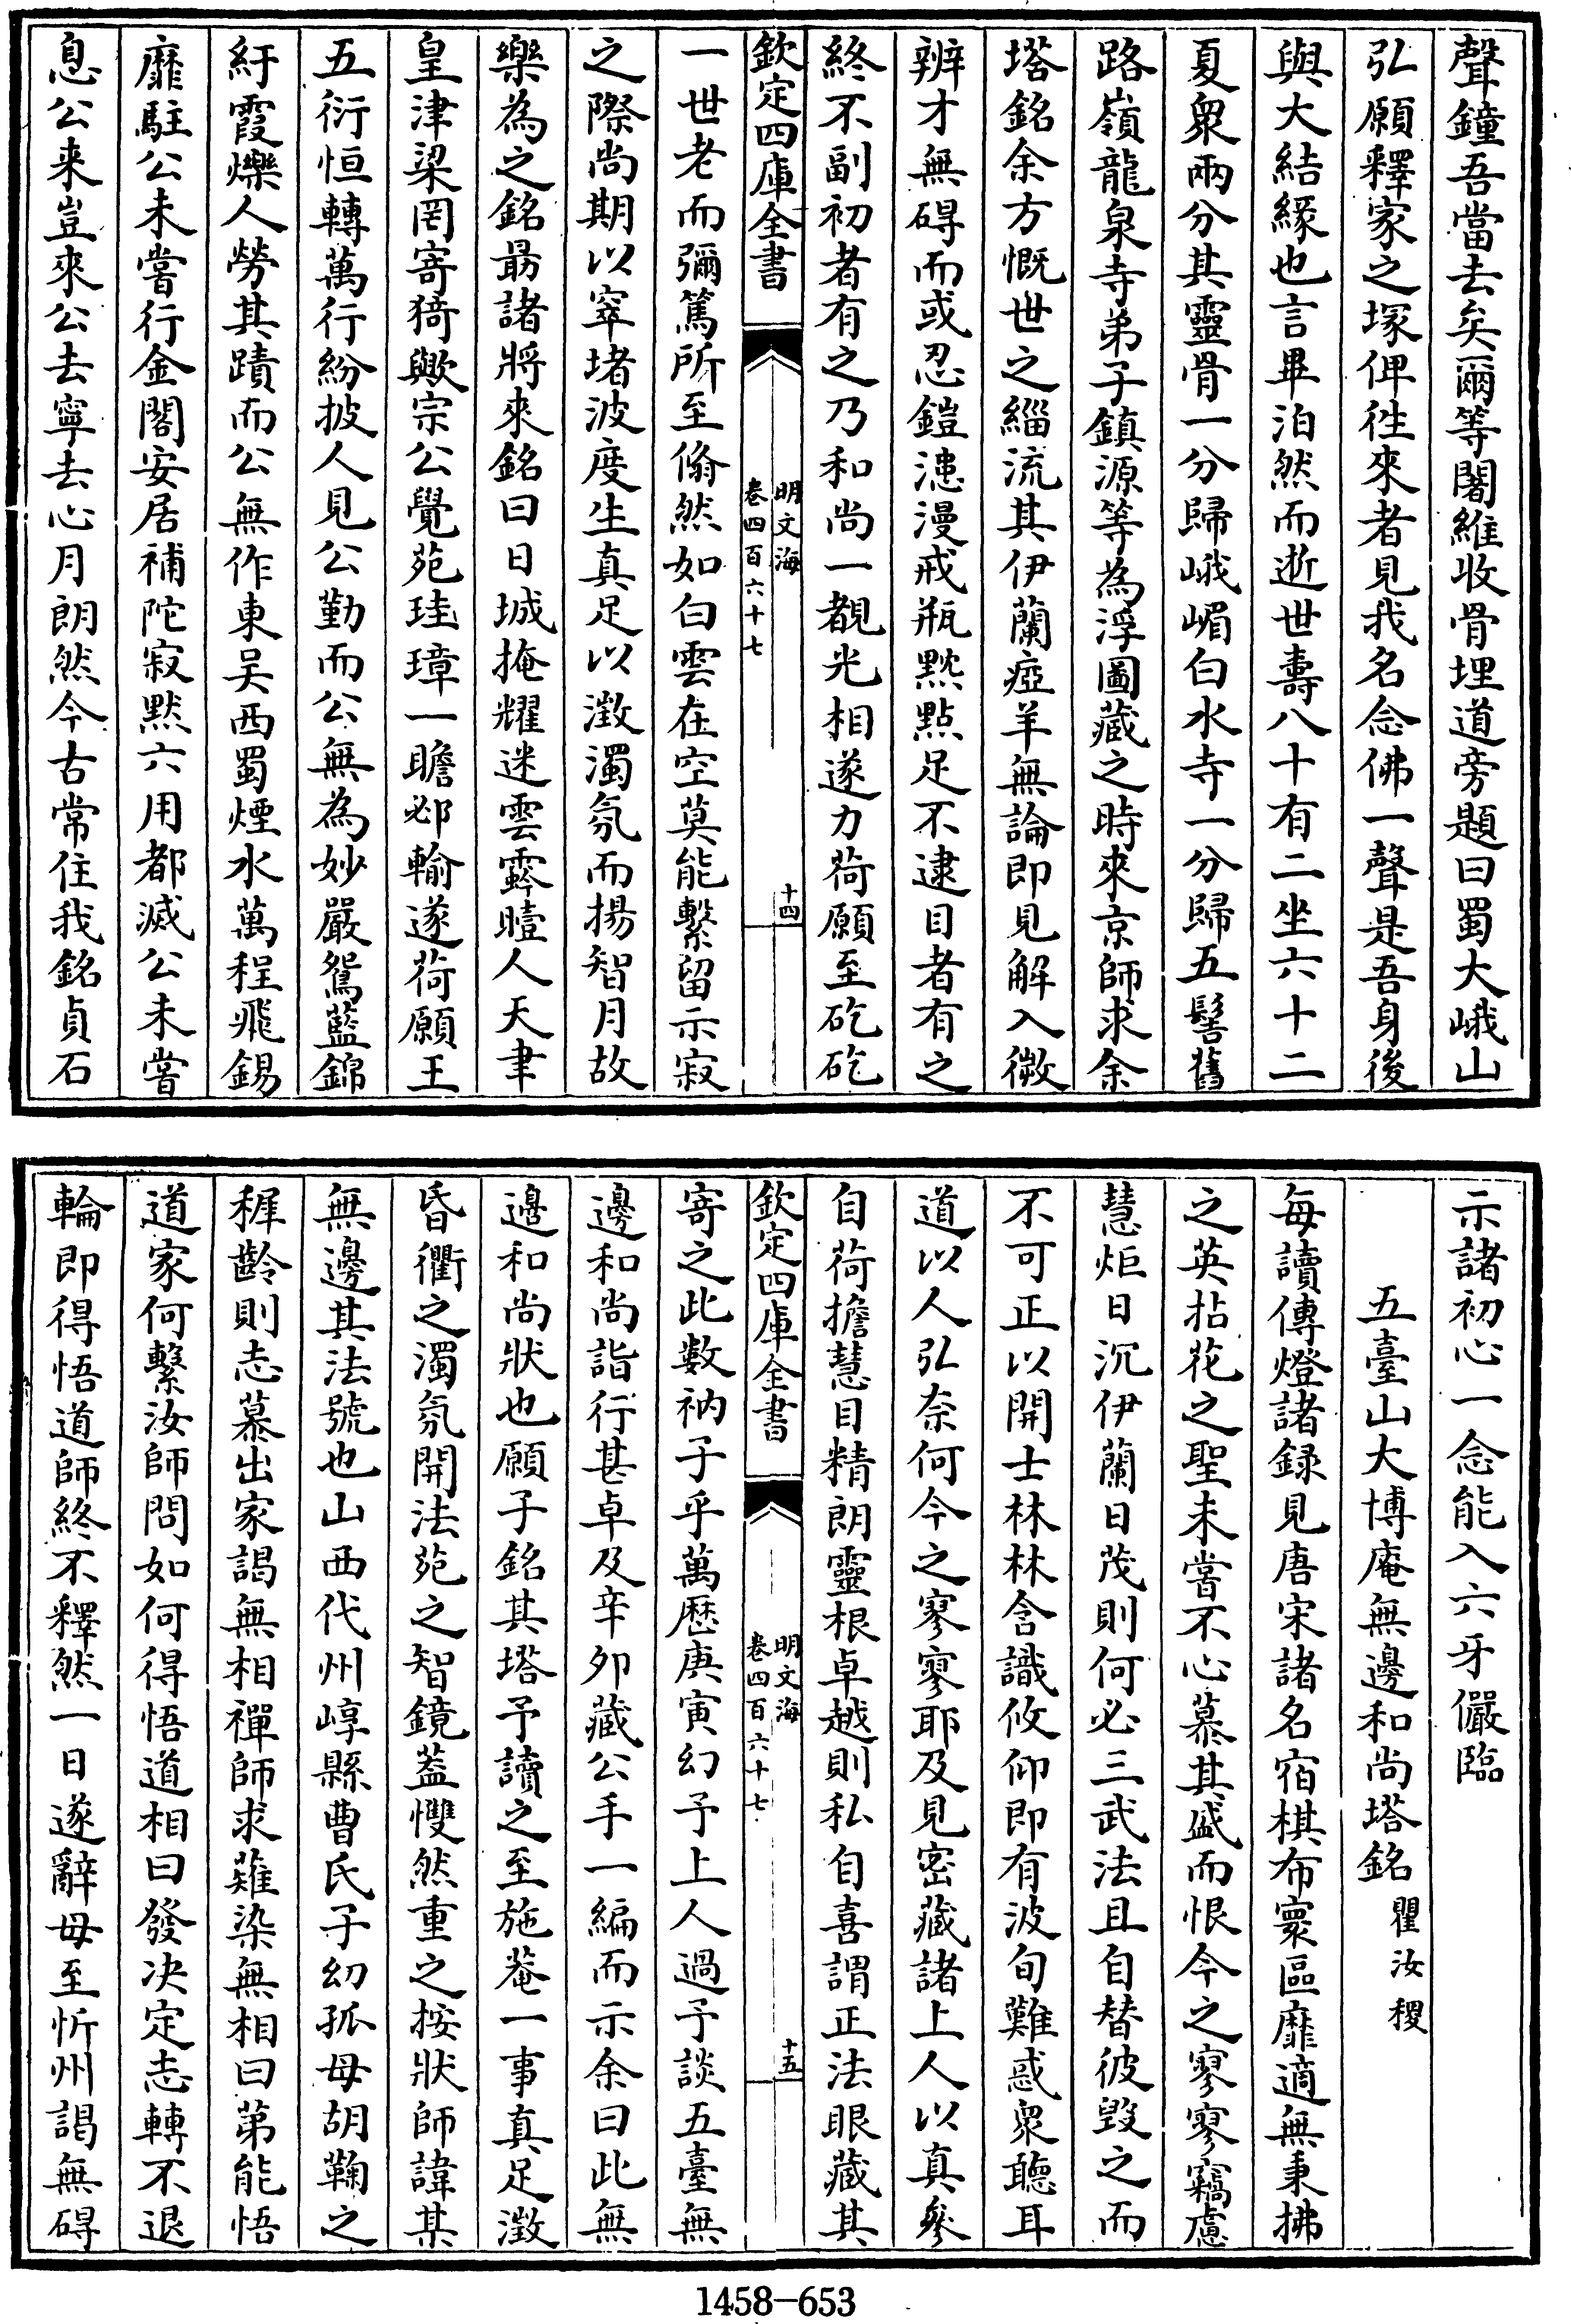 聲鐘吾當去矣爾等闍維收骨埋道旁題曰蜀大峨山
弘願釋家之塚俾徃來者見我名念佛一聲是吾身後
與大結緣也言畢泊然而逝世壽八十有二坐六十二
夏衆兩分其靈骨一分歸峨嵋白水寺一分歸五髻舊
路嶺龍泉寺弟子鎮源等為浮圖藏之時來京師求余
塔銘余方慨世之緇流其伊蘭瘂羊無論即見解入微
辨才無碍而或忍鎧漶漫戒瓶黕點足不逮目者有之
終不副初者有之乃和尚一覩光相遂力荷願至矻矻
欽定四庫全書
明文海
卷四百六十七
十四
一世老而彌篤所至翛然如白雲在空莫能繫留示寂
之際尚期以窣堵波度生真足以澂濁氛而揚智月故
樂為之銘勗諸將來銘曰日城掩耀迷雲霿曀人天聿
皇津梁罔寄猗歟宗公覺苑珪璋一瞻邲輸遂荷願王
五衍恒轉萬行紛披人見公勤而公無為妙嚴鴛藍錦
紆霞爍人勞其蹟而公無作東吴西蜀煙水萬程飛錫
靡駐公未嘗行金閣安居補陀寂默六用都滅公未嘗
息公来豈來公去寧去心月朗然今古常住我銘貞石
示諸初心一念能入六牙儼臨
五臺山大博庵無邊和尚塔銘 瞿汝稷
每讀傳燈諸録見唐宋諸名宿棋布寰區靡適無秉拂
之英拈花之聖未嘗不心慕其盛而恨今之寥寥竊慮
慧炬日沉伊蘭日茂則何必三武法且自替彼毀之而
不可正以開士林林含識攸仰即有波旬難惑衆聽耳
道以人弘奈何今之寥寥耶及見密藏諸上人以真參
自荷擔慧目精朗靈根卓越則私自喜謂正法眼藏其
欽定四庫全書
明文海
卷四百六十七
十五
寄之此數衲子乎萬歴庚寅幻予上人過予談五臺無
邊和尚詣行甚卓及辛卯藏公手一編而示余曰此無
邊和尚狀也願子銘其塔予讀之至施菴一事真足澂
昏衢之濁氛開法苑之智鏡葢戄然重之按狀師諱某
無邊其法號也山西代州崞縣曹氏子幼孤母胡鞠之
穉齡則志慕出家謁無相禪師求薙染無相曰第能悟
道家何繫汝師問如何得悟道相曰發决定志轉不退
輪即得悟道師終不釋然一日遂辭母至忻州謁無碍
1458-653